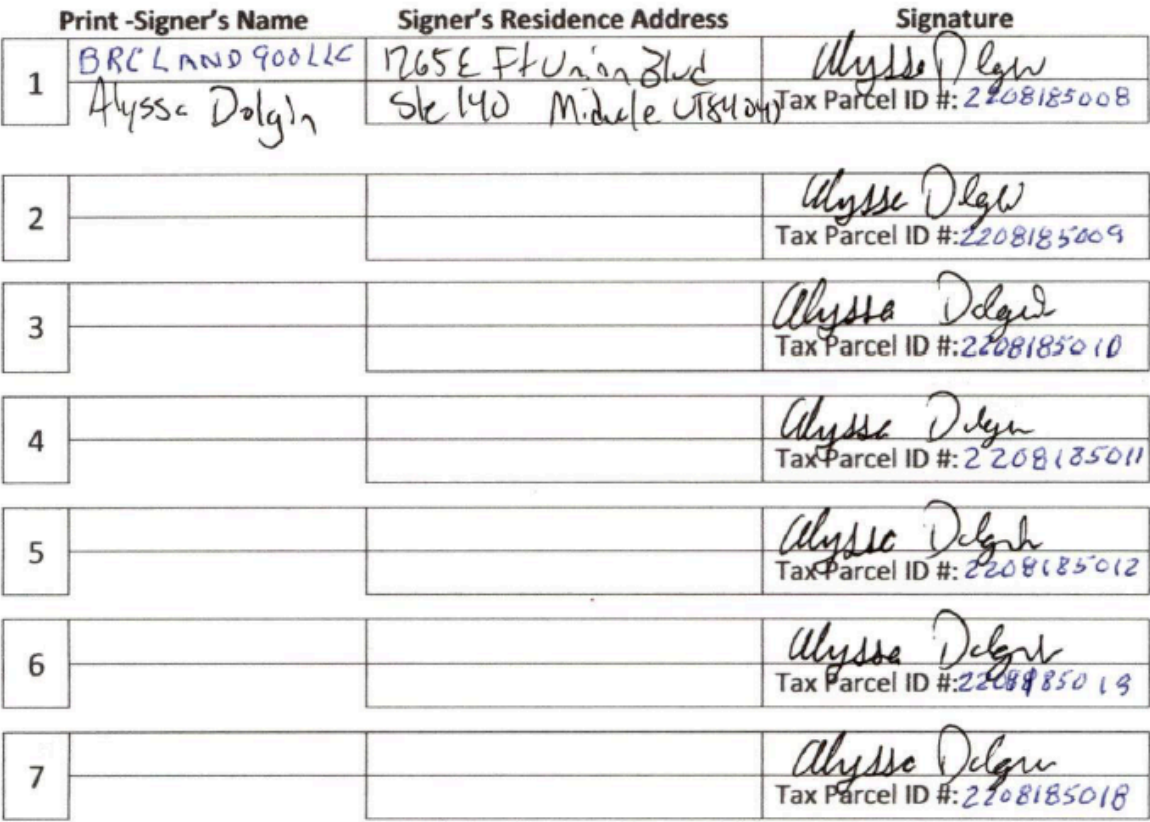 Print -Signer's Name Signer's Residence Address Signature
1
BRC LAND 900 LLC 1265 E Ft Union Blvd Alyssa Dolgin
Alyssa Dolgin Ste 140 Midvale UT 84047 Tax Parcel ID #: 2208185008
2
Alyssa Dolgin
Tax Parcel ID #: 2208185009
3
Alyssa Dolgin
Tax Parcel ID #: 2208185010
4
Alyssa Dolgin
Tax Parcel ID #: 2208185011
5
Alyssa Dolgin
Tax Parcel ID #: 2208185012
6
Alyssa Dolgin
Tax Parcel ID #:
7
Alyssa Dolgin
Tax Parcel ID #: 2208185018